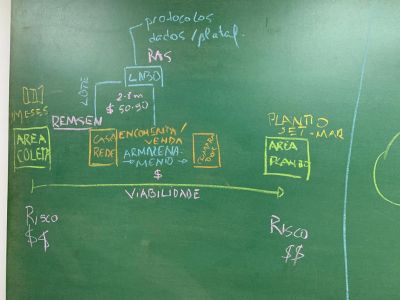 protocolos
dados/plataf.
RAS
LABO
LOTE
2-3m
$ 50-90
MESES
REMSEM
AREA
COLETA
CASA
REDE
ENCOMENTA/
VENDA
ARMAZENA-
MENTO
$
PLANTIO
SET-MAR
AREA
PLANTIO
VIABILIDADE
RISCO
$$
RISCO
$$